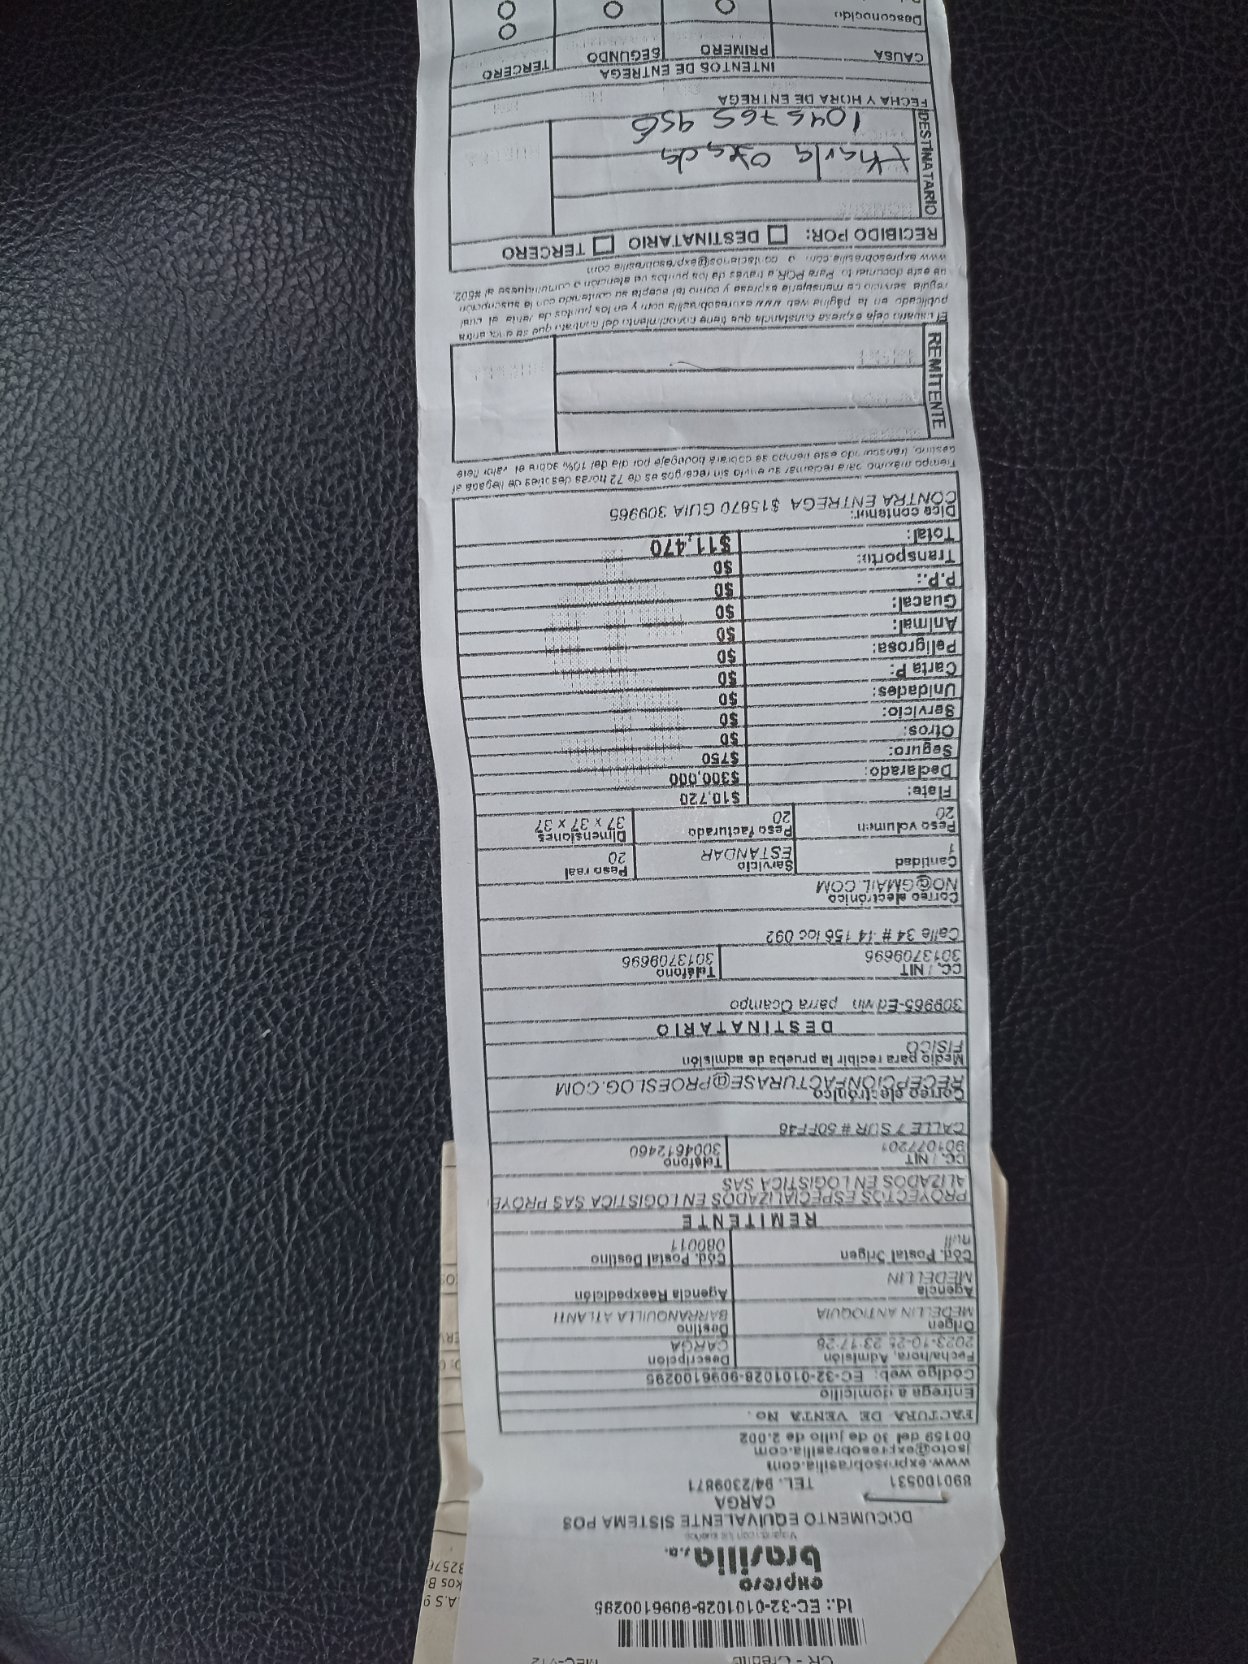 CR - Crédito MEC-V12
Id.: EC-32-0101028-9096100295
expreso
brasilia s.a.
DOCUMENTO EQUIVALENTE SISTEMA POS
CARGA
890100531 TEL. 94/2309871
www.expresobrasilia.com
jsoto@expresobrasilia.com
00159 del 30 de julio de 2.002
FACTURA DE VENTA No.
Entrega a domicilio
Código web: EC-32-0101028-9096100295
Fecha/hora, Admisión Descripción
2023-10-25 23:17:28 CARGA
Origen Destino
MEDELLIN ANTIOQUIA BARRANQUILLA ATLANTI
Agencia Agencia Reexpedición
MEDELLIN
Cód. Postal Origen Cód. Postal Destino
null 080011
REMITENTE
PROYECTOS ESPECIALIZADOS EN LOGISTICA SAS PROYE
ALIZADOS EN LOGISTICA SAS
CC. / NIT Teléfono
901077201 3004612460
CALLE 7 SUR # 50FF48
Correo electrónico
RECEPCIONFACTURASE@PROESLOG.COM
Medio para recibir la prueba de admisión
FISICO
DESTINATARIO
309965-Edwin parra Ocampo
CC. / NIT Teléfono
3013709695 3013709695
Calle 34 # 44 156 loc 092
Correo electrónico
NO@GMAIL.COM
Cantidad Servicio Peso real
1 ESTANDAR 20
Peso volumen Peso facturado Dimensiones
20 20 37 x 37 x 37
Flete: $10,720
Declarado: $300,000
Seguro: $750
Otros: $0
Servicio: $0
Unidades: $0
Carta P: $0
Peligrosa: $0
Animal: $0
Guacal: $0
P.P.: $0
Transporto: $0
Total: $11,470
Dice contener:
CONTRA ENTREGA $15870 GUIA 309965
Tiempo máximo para reclamar su envío sin recargos es de 72 horas despues de llegada al
destino, transcurrido este tiempo se cobrará bodegaje por día del 10% sobre el valor flete
REMITENTE
El usuario deja expresa constancia que tiene conocimiento del contrato que se encuentra
publicado en la página web www.expresobrasilia.com y en los puntos de venta, el cual
regula servicio de mensajería expresa y como tal acepta su contenido con la suscripción
de este documento. Para PQR a través de los puntos de atención o comuníquese al #502,
www.expresobrasilia.com o contactenos@expresobrasilia.com
RECIBIDO POR: DESTINATARIO TERCERO
DESTINATARIO
1045765956
FECHA Y HORA DE ENTREGA
INTENTOS DE ENTREGA
CAUSA PRIMERO SEGUNDO TERCERO
Desconocido